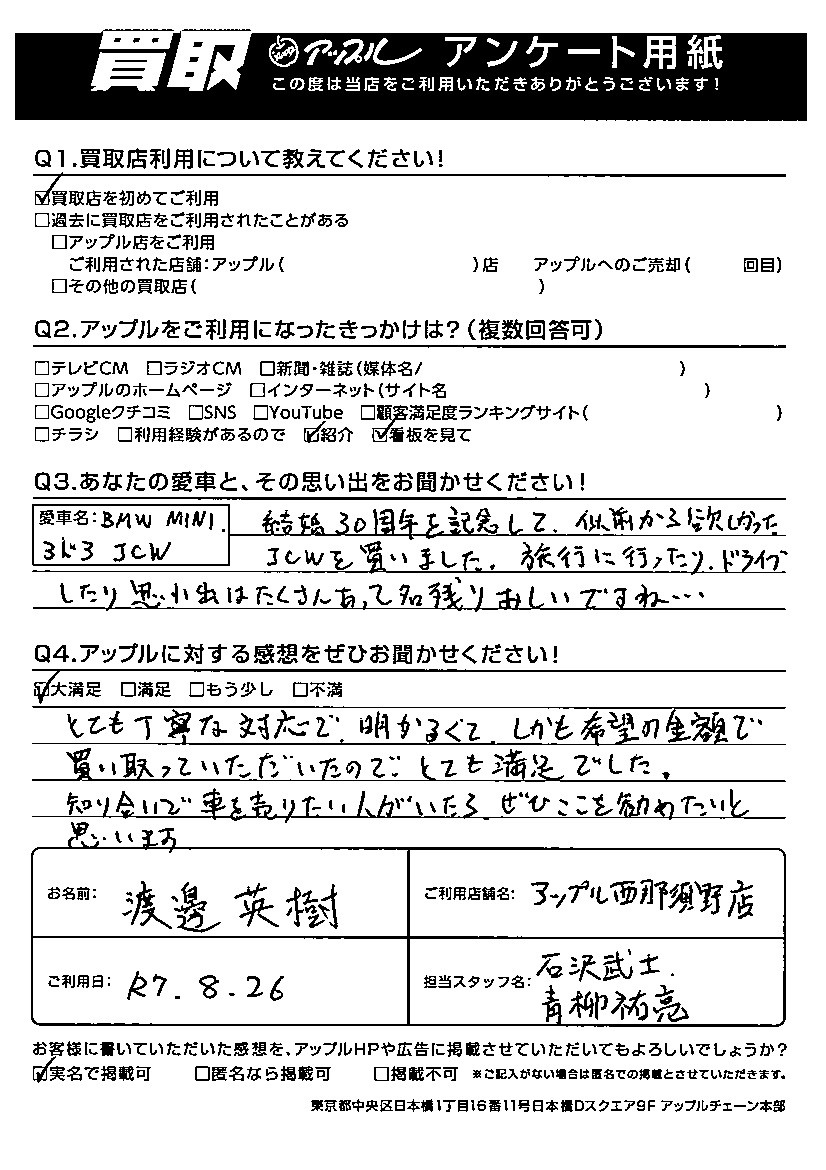 買取 アップル アンケート用紙
この度は当店をご利用いただきありがとうございます!
Q1.買取店利用について教えてください!
☑買取店を初めてご利用
□過去に買取店をご利用されたことがある
□アップル店をご利用
ご利用された店舗:アップル( )店 アップルへのご売却( 回目)
□その他の買取店( )
Q2.アップルをご利用になったきっかけは?(複数回答可)
□テレビCM □ラジオCM □新聞・雑誌(媒体名/ )
□アップルのホームページ □インターネット(サイト名 )
□Googleクチコミ □SNS □YouTube □顧客満足度ランキングサイト( )
□チラシ □利用経験があるので ☑紹介 ☑看板を見て
Q3.あなたの愛車と、その思い出をお聞かせください!
愛車名:BMW MINI.
3ドア JCW
結婚30周年を記念して、以前から欲しかった
JCWを買いました。旅行に行ったり、ドライブ
したり思い出はたくさんあって名残りおしいですね…
Q4.アップルに対する感想をぜひお聞かせください!
☑大満足 □満足 □もう少し □不満
とても丁寧な対応で、明かるくて、しかも希望の金額で
買い取っていただいたので、とても満足でした。
知り合いで車を売りたい人がいたら、ぜひここを勧めたいと
思います
お名前: 渡邊 英樹
ご利用店舗名: アップル西那須野店
ご利用日: R7.8.26
担当スタッフ名: 石沢武士.
青柳祐亮
お客様に書いていただいた感想を、アップルHPや広告に掲載させていただいてもよろしいでしょうか?
☑実名で掲載可 □匿名なら掲載可 □掲載不可 ※ご記入がない場合は匿名での掲載とさせていただきます。
東京都中央区日本橋1丁目16番11号日本橋Dスクエア9F アップルチェーン本部